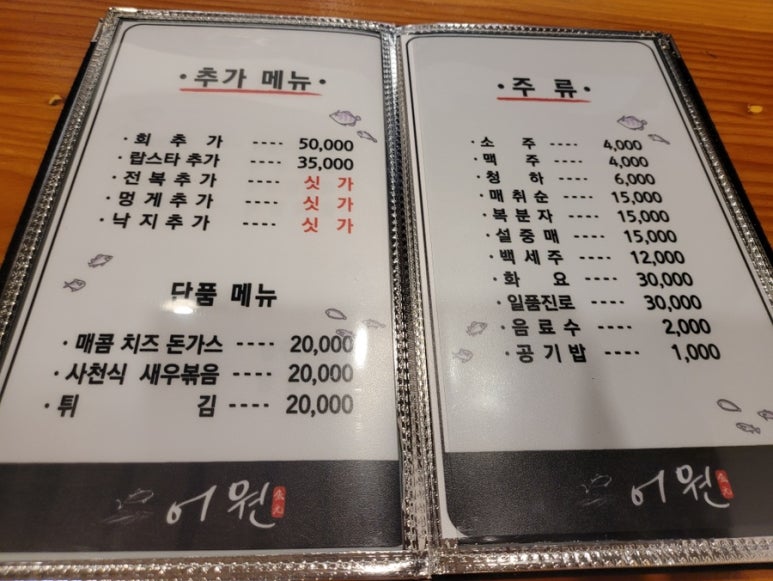 ·추가 메뉴·
·회 추 가 ---- 50,000
·랍스타 추가 ---- 35,000
·전복추가 ---- 싯 가
·멍게추가 ---- 싯 가
·낙지추가 ---- 싯 가
단품 메뉴
·매콤 치즈 돈가스 ---- 20,000
·사천식 새우볶음 ---- 20,000
·튀 김 ---- 20,000
어원
·주 류·
·소 주 ---- 4,000
·맥 주 ---- 4,000
·청 하 ---- 6,000
·매취순 ---- 15,000
·복분자 ---- 15,000
·설중매 ---- 15,000
·백세주 ---- 12,000
·화 요 ---- 30,000
·일품진로 ---- 30,000
·음료수 ---- 2,000
·공기밥 ---- 1,000
어원